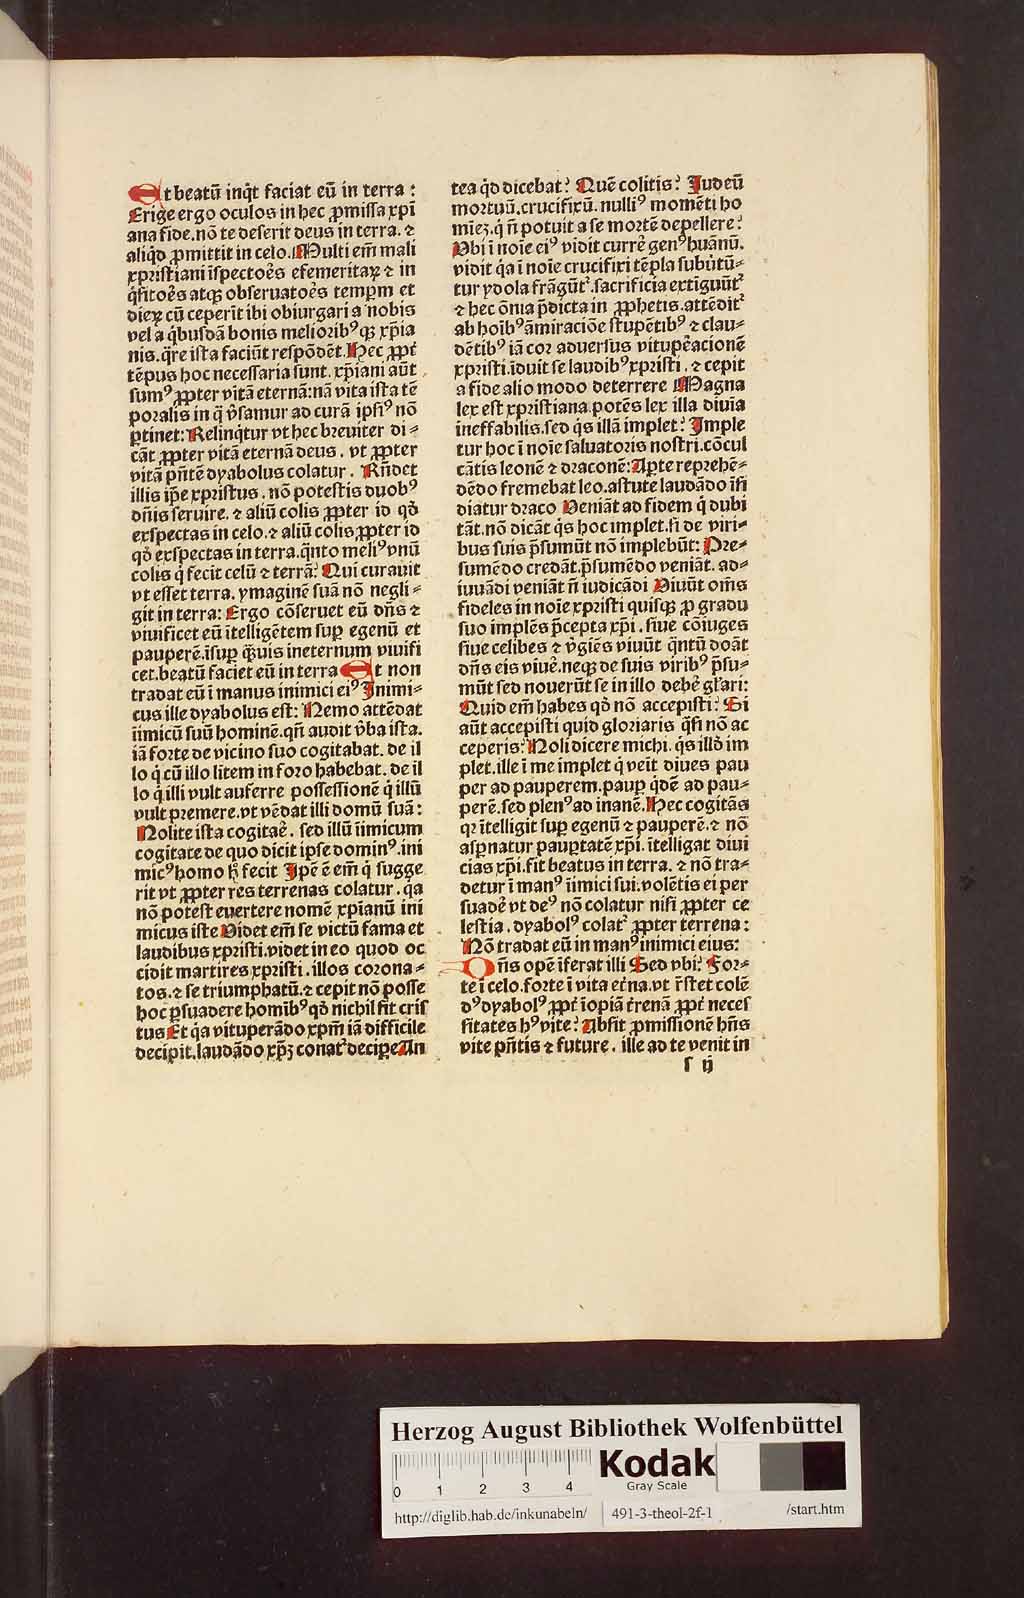 Et beatū inq̄t faciat eū in terra :
Erige ergo oculos in hec ꝓmissa xp̄i
ana fide. nō te deserit deus in terra. ⁊
aliq̄d ꝓmittit in celo. Multi em̄ mali
xpristiani īspectoēs efemeritaꝝ ⁊ in
q̄sitoēs atqꝫ obseruatoēs temp̲m et
dieꝝ cū ceperit ibi obiurgari a nobis
vel a q̄busdā bonis meliorib⁹ qꝫ xp̄ia
nis. q̄re ista faciūt respōdēt. Hec ꝓpt̄
tēpus hoc necessaria sunt. xp̄iani aūt
sum⁹ ꝓpter vitā eternā: nā vita ista tē
poralis in q̄ v̄samur ad curā ipsi⁹ nō
ꝑtinet: Relinq̄tur vt hec breuiter di-
cāt ꝓpter vitā eternā deus. vt ꝓpter
vitā pn̄tē dyabolus colatur. Rn̄det
illis ip̄e xpristus. nō potestis duob⁹
dn̄is seruire. ⁊ aliū colis ꝓpter id qd̄
exspectas in celo. ⁊ aliū colis ꝓpter id
qd̄ exspectas in terra. q̄nto meli⁹ vnū
colis q̄ fecit celū ⁊ terrā: Qui curauit
vt esset terra. ymaginē suā nō negli-
git in terra: Ergo cōseruet eū dn̄s ⁊
viuificet eū ītelligētem suꝑ egenū et
pauperē. īsuꝑ q̄uis in eternum viuifi
cet. beatū faciet eū in terra Et non
tradat eū ī manus inimici ei⁹ Inimi-
cus ille dyabolus est: Nemo attēdat
īimicū suū hominē. qn̄ audit v̄ba ista.
iā forte de vicino suo cogitabat. de il
lo q̄ cū illo litem in foro habebat. de il
lo q̄ illi vult auferre possessionē q̄ illū
vult premere. vt vēdat illi domū suā:
Nolite ista cogitaē. sed illū īimicum
cogitate de quo dicit ipse domin⁹. ini
mic⁹ homo h̄ fecit Ipē ē em̄ q̄ sugge
rit vt ꝓpter res terrenas colatur. qa
nō potest euertere nomē xp̄ianū ini
micus iste Videt em̄ se victū fama et
laudibus xpristi. videt in eo quod oc
cidit martires xpristi. illos corona-
tos. ⁊ se triumphatū. ⁊ cepit nō posse
hoc ꝑsuadere homib⁹ qd̄ nichil sit cris
tus Et q̄a vituperādo xp̄m iā difficile
decipit. laudādo xp̄ꝫ conat᷑ decipe An
tea q̄d dicebat: Quē colitis: Iudeū
mortuū. crucifixū. nulli⁹ momēti ho
mieꝫ. q̄ n̄ potuit a se mortē depellere:
Vbi ī noīe ei⁹ vidit currē gen⁹ huānū.
vidit q̄a ī noīe crucifixi tēpla subūtū-
tur ydola frāgūt᷑. sacrificia extīguūt᷑
⁊ hec ōnia p̄dicta in ꝓphetis. attēdit᷑
ab hoīb⁹ āmiraciōe stupētib⁹ ⁊ clau-
dētib⁹ iā cor aduersus vitupēacionē
xpristi. īduit se laudib⁹ xpristi. ⁊ cepit
a fide alio modo deterrere Magna
lex est xpristiana. potēs lex illa diuīa
ineffabilis. sed q̄s illā implet: Imple
tur hoc ī noīe saluatoris nostri. cōcul
cātis leonē ⁊ draconē: Aꝑte reprehē-
dēdo fremebat leo. astute laudādo īsi
diatur draco Veniāt ad fidem q̄ dubi
tāt. nō dicāt q̄s hoc implet. si de viri-
bus suis p̄sumūt nō implebūt: Pre-
sumēdo credāt. p̄sumēdo veniāt. ad-
iuuādi veniāt n̄ iudicādi Viuūt om̄s
fideles in noīe xpristi quisqꝫ ꝓ gradu
suo implēs p̄cepta xp̄i. siue cōiuges
siue celibes ⁊ v̄giēs viuūt q̄ntū doāt
dn̄s eis viuē. neqꝫ de suis virib⁹ p̄su-
mūt sed nouerūt se in illo debē gl̄ari:
Quid em̄ habes qd̄ nō accepisti: Si
aūt accepisti quid gloriaris q̄si nō ac
ceperis: Noli dicere michi. q̄s illd̄ im
plet. ille ī me implet q̄ veīt diues pau
per ad pauperem. pauꝑ q̄dē ad pau-
perē. sed plen⁹ ad inanē. Hec cogitās
qꝛ ītelligit suꝑ egenū ⁊ pauperē. ⁊ nō
asꝑnatur pauꝑtatē xp̄i. ītelligat diui
cias xp̄i. fit beatus in terra. ⁊ nō tra-
detur ī man⁹ īimici sui. volētis ei per
suadē vt de⁹ nō colatur nisi ꝓpter ce
lestia. dyabol⁹ colat᷑ ꝓpter terrena :
Nō tradat eū in man⁹ inimici eius:
Dn̄s opē īferat illi Sed vbi: For-
te ī celo. forte ī vita et̄na. vt r̄stet colē
d⁹ dyabol⁹ ꝓpt̄ īopiā t̄renā ꝓpt̄ neces
sitates h⁹ vite: Absit ꝓmissionē hn̄s
vite pn̄tis ⁊ future. ille ad te venit in
s ij
Herzog August Bibliothek Wolfenbüttel
0 1 2 3 4
Kodak
Gray Scale
http://diglib.hab.de/inkunabeln/ 491-3-theol-2f-1 /start.htm